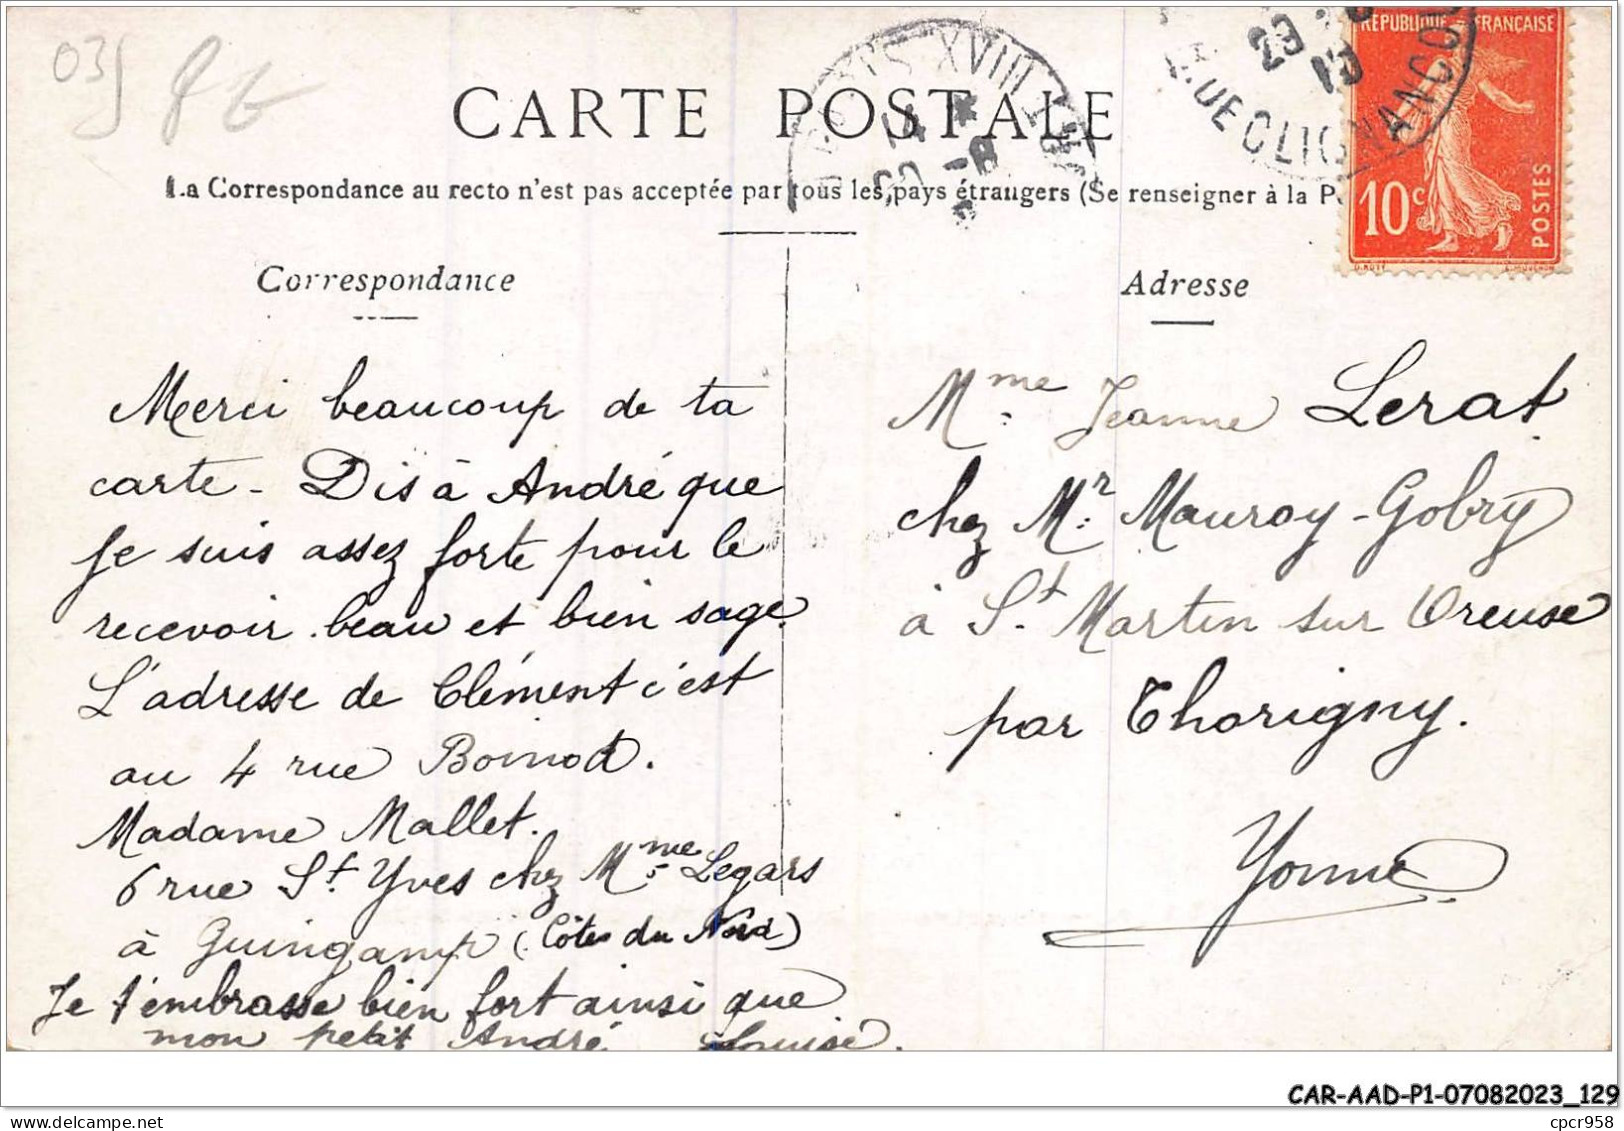 03J
CARTE POSTALE
La Correspondance au recto n'est pas acceptée par tous les pays étrangers (Se renseigner à la P
Correspondance
Adresse
REPUBLIQUE FRANÇAISE
10c
POSTES
PARIS XVIII
RUE CLIGNANCO
Merci beaucoup de ta
carte - Dis à André que
je suis assez forte pour le
recevoir beau et bien sage.
L'adresse de Clément c'est
au 4 rue Boinod.
Madame Mallet.
6 rue St. Yves chez Mme Legars
à Guingamp (Côtes du Nord)
Je t'embrasse bien fort ainsi que
mon petit André Louise.
Mme Jeanne Lerat
chez Mr Mauroy-Gobry
à St. Martin sur Oreuse
par Thorigny.
Yonne
CAR-AAD-P1-07082023_129
cpcr958